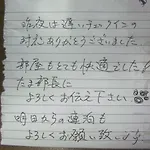 昨夜は遅いチェックインの
対応ありがとうございました
部屋もとても快適でした
たま部長に
よろしくお伝え下さい
明日からの連泊も
よろしくお願い致します